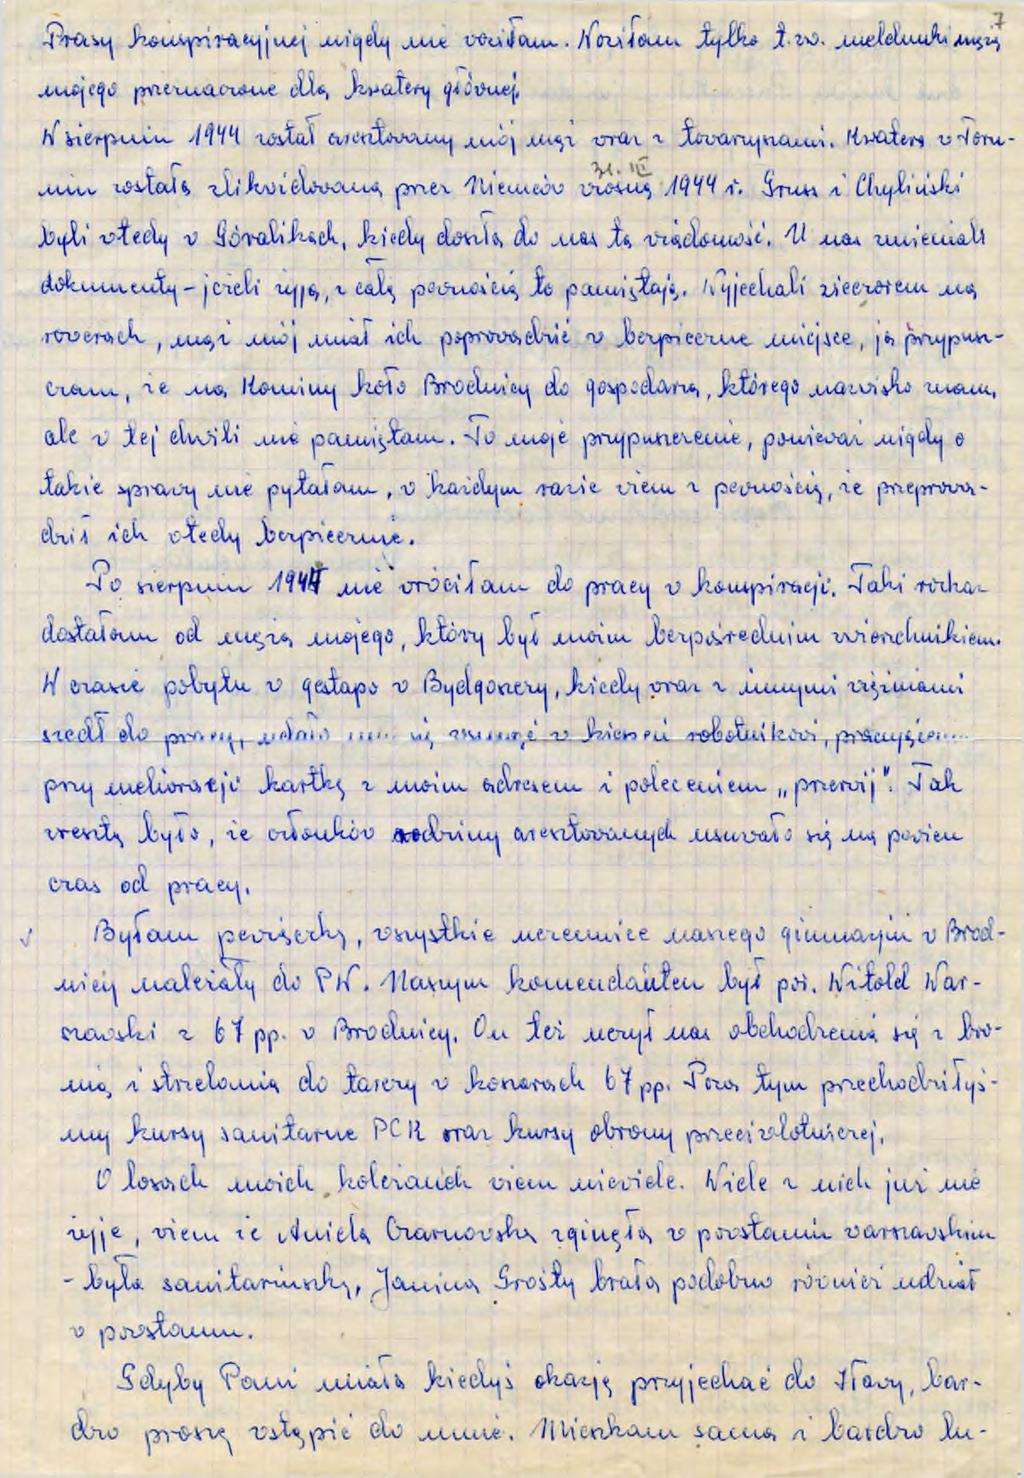 7
Prasy konspiracyjnej nigdy nie woziłam. Woziłam tylko t.zw. meldunki męża
mojego przeznaczone dla kwatery głównej.
W sierpniu 1944 został aresztowany mój mąż wraz z towarzyszami. Kwatera w Toru-
niu została zlikwidowana przez Niemców wiosną 1944 r. Grusz i Chyliński
byli wtedy w Góralikach, kiedy doszła do nas ta wiadomość. U nas zmieniali
dokumenty – jeżeli żyją, z całą pewnością to pamiętają. Wyjechali wieczorem na
rowerach, mąż mój miał ich poprowadzić w bezpieczne miejsce, ja przypusz-
czam, że na Kominy koło Brodnicy do gospodarza, którego nazwisko znam,
ale w tej chwili nie pamiętam. To moje przypuszczenie, ponieważ nigdy o
takie sprawy nie pytałam, w każdym razie wiem z pewnością, że przeprowa-
dził ich wtedy bezpiecznie.
Po sierpniu 1944 nie wróciłam do pracy w konspiracji. Taki rozkaz
dostałam od męża mojego, który był moim bezpośrednim zwierzchnikiem.
W czasie pobytu w gestapo w Bydgoszczy, kiedy wraz z innymi więźniami
szedł do pracy, udało mu się wsunąć w kieszeń robotnikowi,
przy melioracji kartkę z moim adresem i poleceniem „przerwij”. Tak
zresztą było, że członków rodziny aresztowanych usuwało się na pewien
czas od pracy.
Byłam pewiaczką, wszystkie uczennice naszego gimnazjum w Brod-
nicy należały do PW. Naszym komendantem był por. Witold War-
szawski z 67 pp. w Brodnicy. On też uczył nas obchodzenia się z bro-
nią i strzelania do tarczy w koszarach 67 pp. Poza tym przechodziłyś-
my kursy sanitarne PCK oraz kursy obrony przeciwlotniczej.
O losach moich koleżanek wiem niewiele. Wiele z nich już nie
żyje, wiem że Aniela Czarnowska zginęła w powstaniu warszawskim
– była sanitariuszką, Janina Grosty brała podobno również udział
w powstaniu.
Gdyby Pani miała kiedyś okazję przyjechać do Iławy, bar-
dzo proszę wstąpić do mnie. Mieszkam sama i bardzo lu-